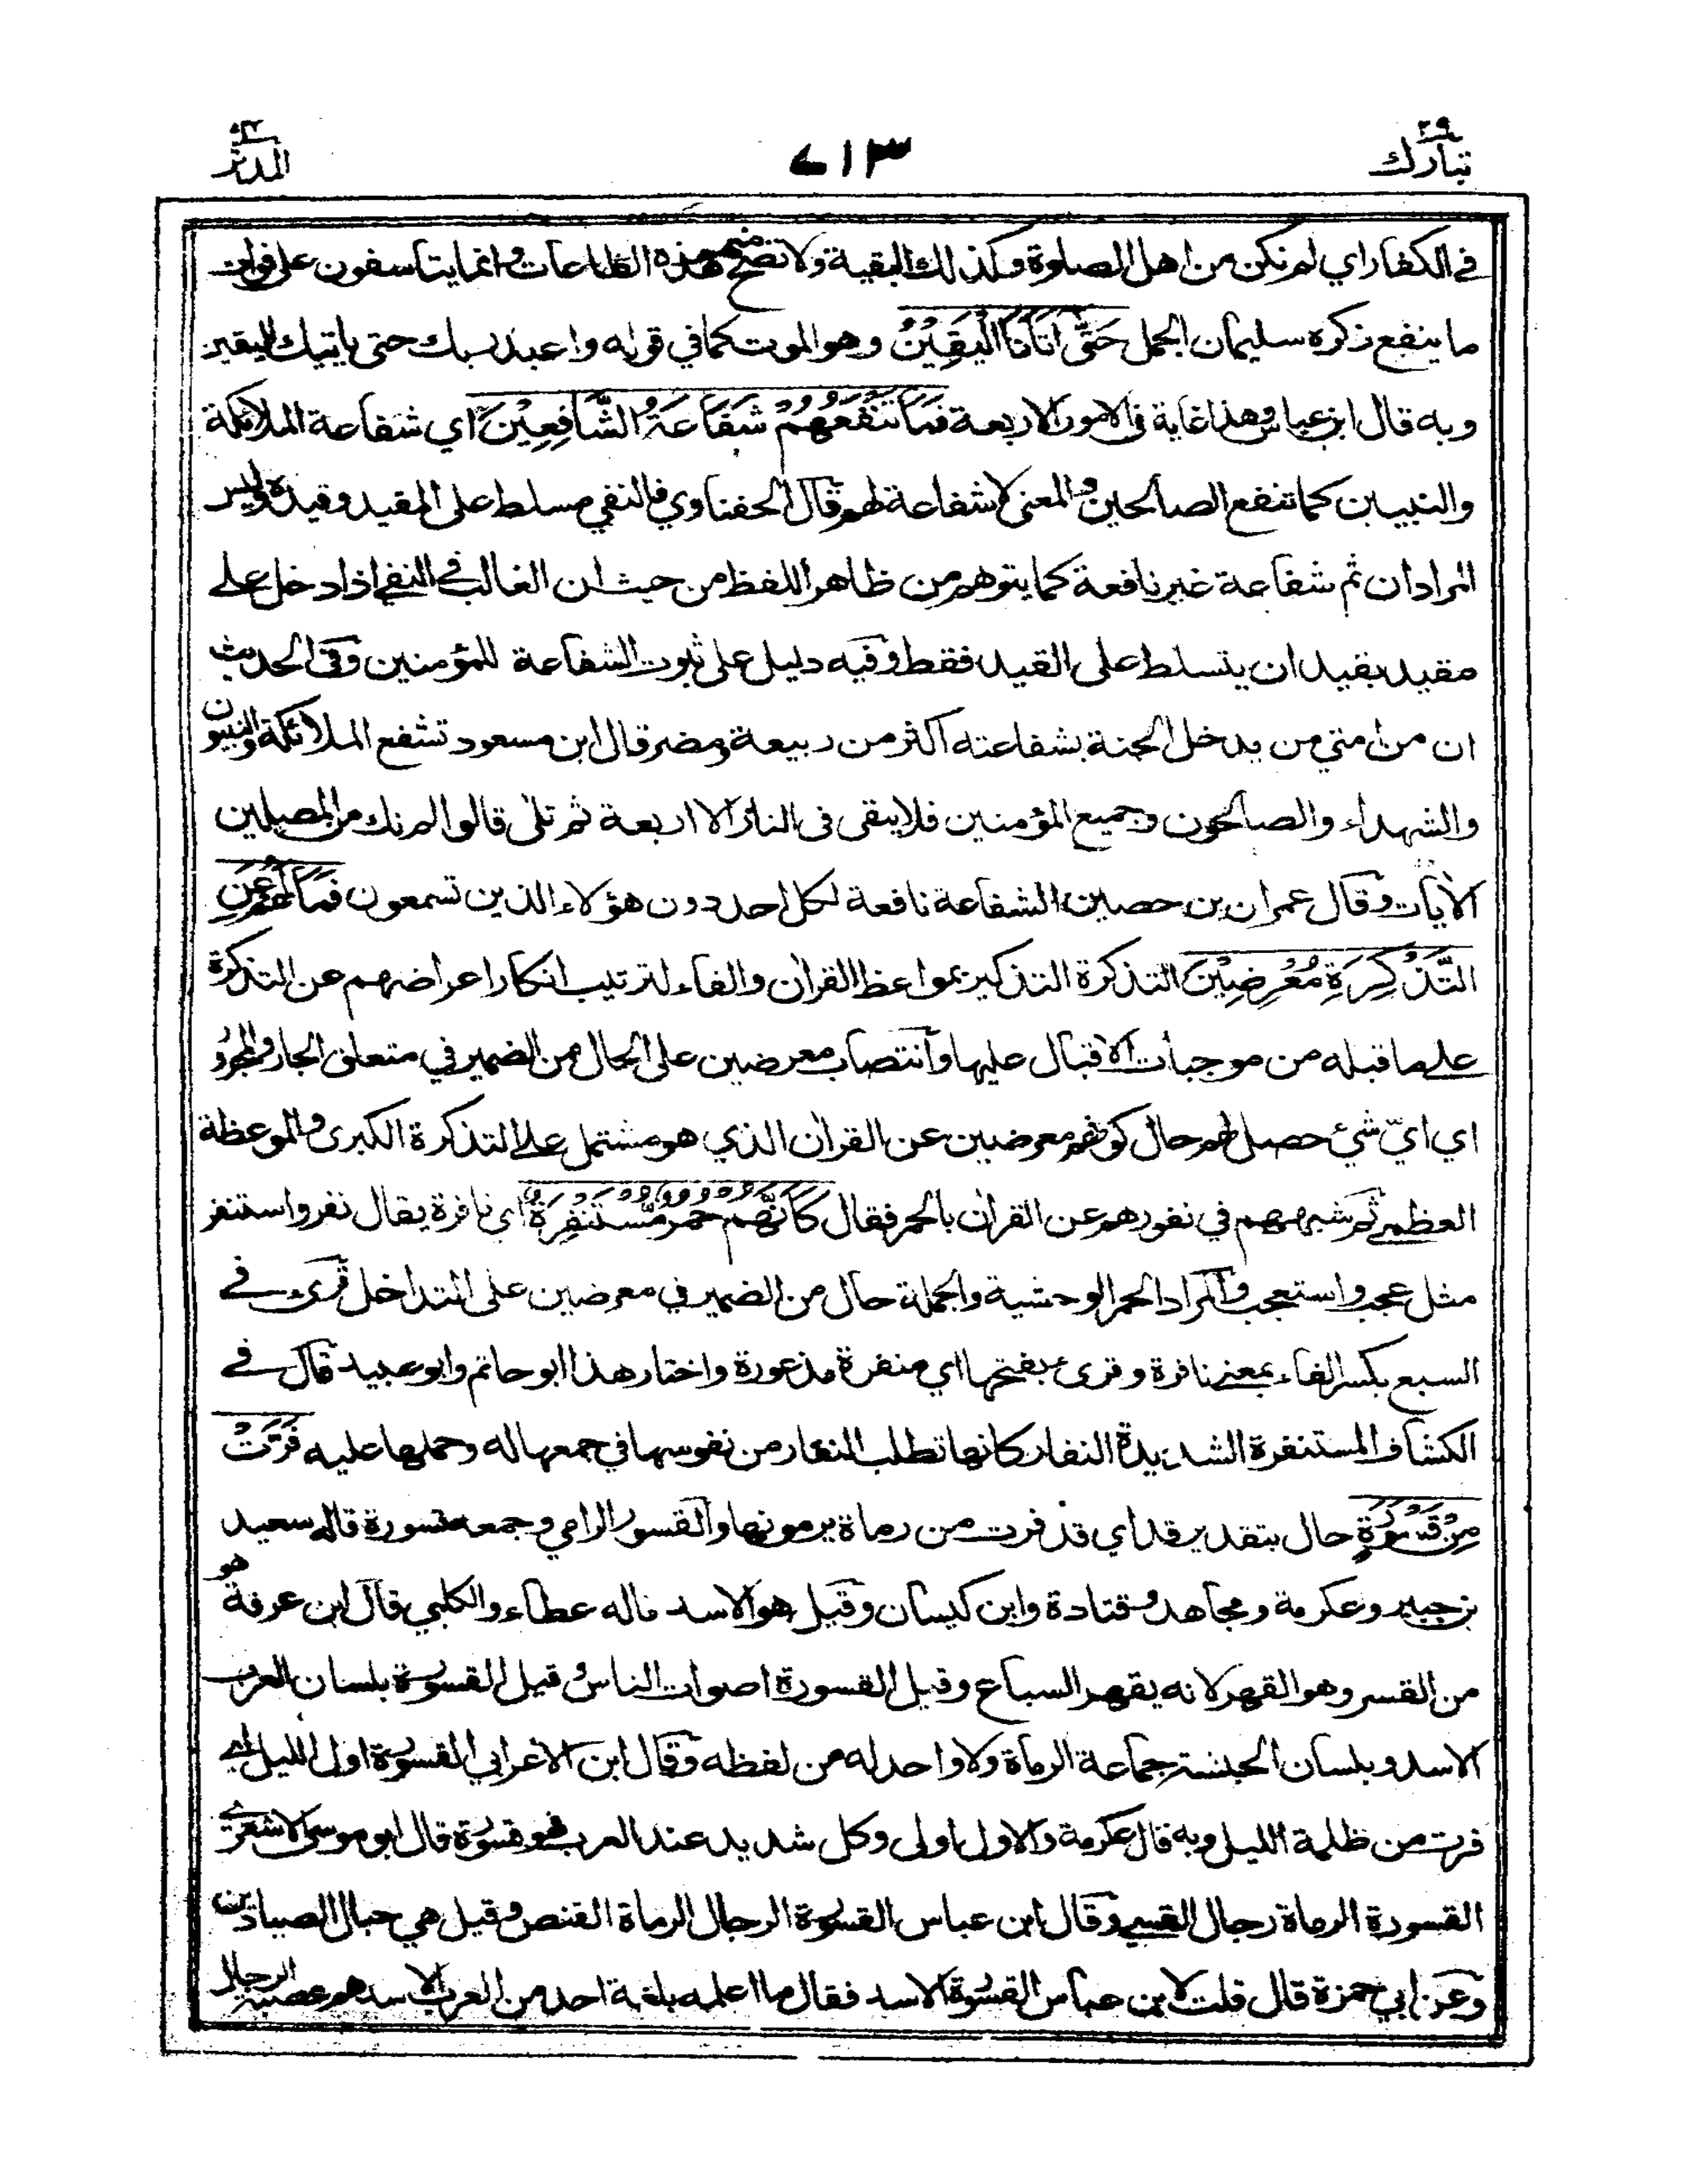 تبارك ٢٩
٧١٣
المدثر
في الكفار اي لم نكن من اهل الصلوة وكذلك البقية ولا تصح منهم هذه الطاعات وانما يتاسفون على فوات
ما ينفع ذكره سليمان الجمل حَتّٰى اَتَانَا الْيَقِيْنُ وهو الموت كما في قوله واعبد ربك حتى ياتيك اليقين
وبه قال ابن عباس وهذا غاية في الامور الاربعة فَمَا تَنْفَعُهُمْ شَفَاعَةُ الشَّافِعِيْنَ اي شفاعة الملائكة
والنبيين كما تنفع الصالحين والمعنى لا شفاعة لهم قال الحفناوي فالنفي مسلط على المقيد وقيده وليس
المراد ان ثم شفاعة غير نافعة كما يتوهم من ظاهر اللفظ من حيث ان الغالب في النفي اذا دخل على
مقيد بقيد ان يتسلط على القيد فقط وفيه دليل على ثبوت الشفاعة للمؤمنين وفي الحديث
ان من امتي من يدخل الجنة بشفاعته اكثر من ربيعة ومضر قال ابن مسعود تشفع الملائكة والنبيون
والشهداء والصالحون وجميع المؤمنين فلا يبقى في النار الا اربعة ثم تلى قالوا لم نك من المصلين
الاٰيات وقال عمران بن حصين الشفاعة نافعة لكل احد دون هؤلاء الذين تسمعون فَمَا لَهُمْ عَنِ
التَّذْكِرَةِ مُعْرِضِيْنَ التذكرة التذكير بمواعظ القراٰن والفاء لترتيب انكار اعراضهم عن التذكرة
على ما قبله من موجبات الاقبال عليها وانتصاب معرضين على الحال من الضمير في متعلق الجار والمجرور
اي ايّ شيء حصل لهم حال كونهم معرضين عن القراٰن الذي هو مشتمل على التذكرة الكبرى والموعظة
العظمى ثم شبههم في نفورهم عن القراٰن بالحمر فقال كَأَنَّهُمْ حُمُرٌ مُّسْتَنْفِرَةٌ اي نافرة يقال نفر واستنفر
مثل عجب واستعجب والمراد الحمر الوحشية والجملة حال من الضمير في معرضين على التداخل قرئ في
السبع بكسر الفاء بمعنى نافرة وقرئ بفتحها اي منفرة مذعورة واختار هذا ابو حاتم وابو عبيد قال في
الكشاف المستنفرة الشديدة النفار كانها تطلب النفار من نفوسها في جمعها له وحملها عليه فَرَّتْ
مِنْ قَسْوَرَةٍ حال بتقدير قد اي قد فرت من رماة يرمونها والقسور الرامي وجمعه قسورة قاله سعيد
بن جبير وعكرمة ومجاهد وقتادة وابن كيسان وقيل هو الاسد قاله عطاء والكلبي قال ابن عرفة هو
من القسر وهو القهر لانه يقهر السباع وقيل القسورة اصوات الناس وقيل القسورة بلسان العرب
الاسد وبلسان الحبشة جماعة الرماة ولا واحد له من لفظه وقال ابن الاعرابي القسورة اول الليل اي
فرت من ظلمة الليل وبه قال عكرمة والاول اولى وكل شديد عند العرب فهو قسورة قال ابو موسى الاشعري
القسورة الرماة رجال القسي وقال ابن عباس القسورة الرجال الرماة القنص وقيل هي حبال الصيادين
وعن ابي حمزة قال قلت لابن عباس القسورة الاسد فقال ما اعلمه بلغة احد من العرب الاسد هو عصبة الرجال